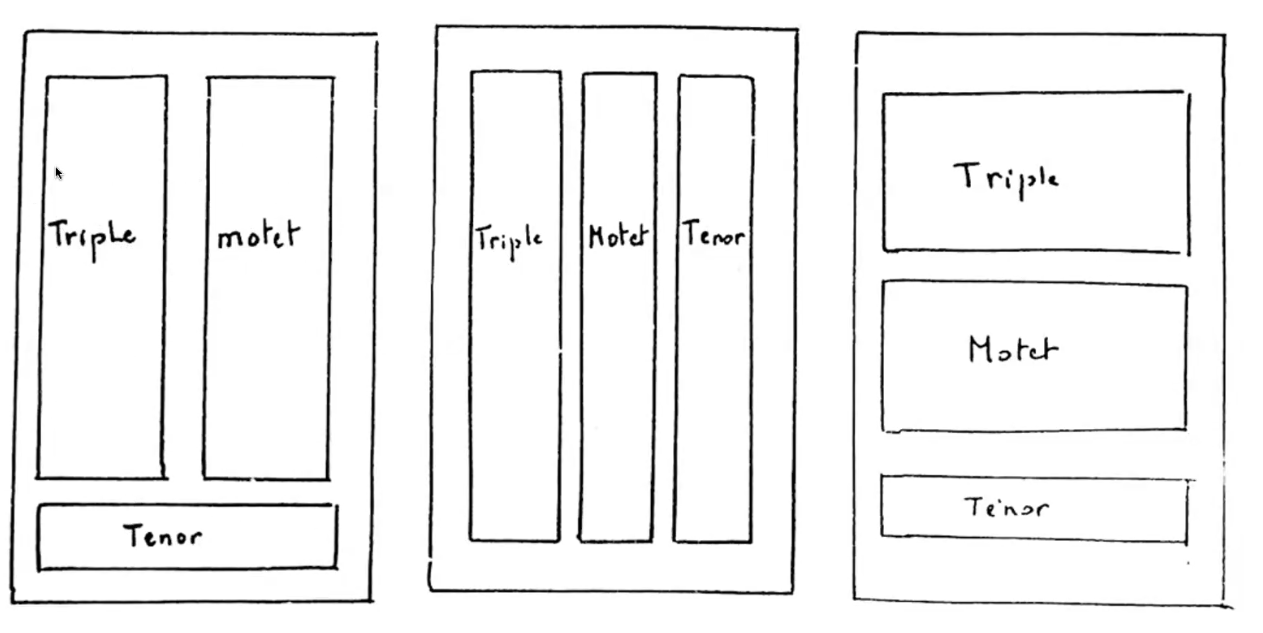 Triple
motet
Tenor
Triple
Motet
Tenor
Triple
Motet
Tenor